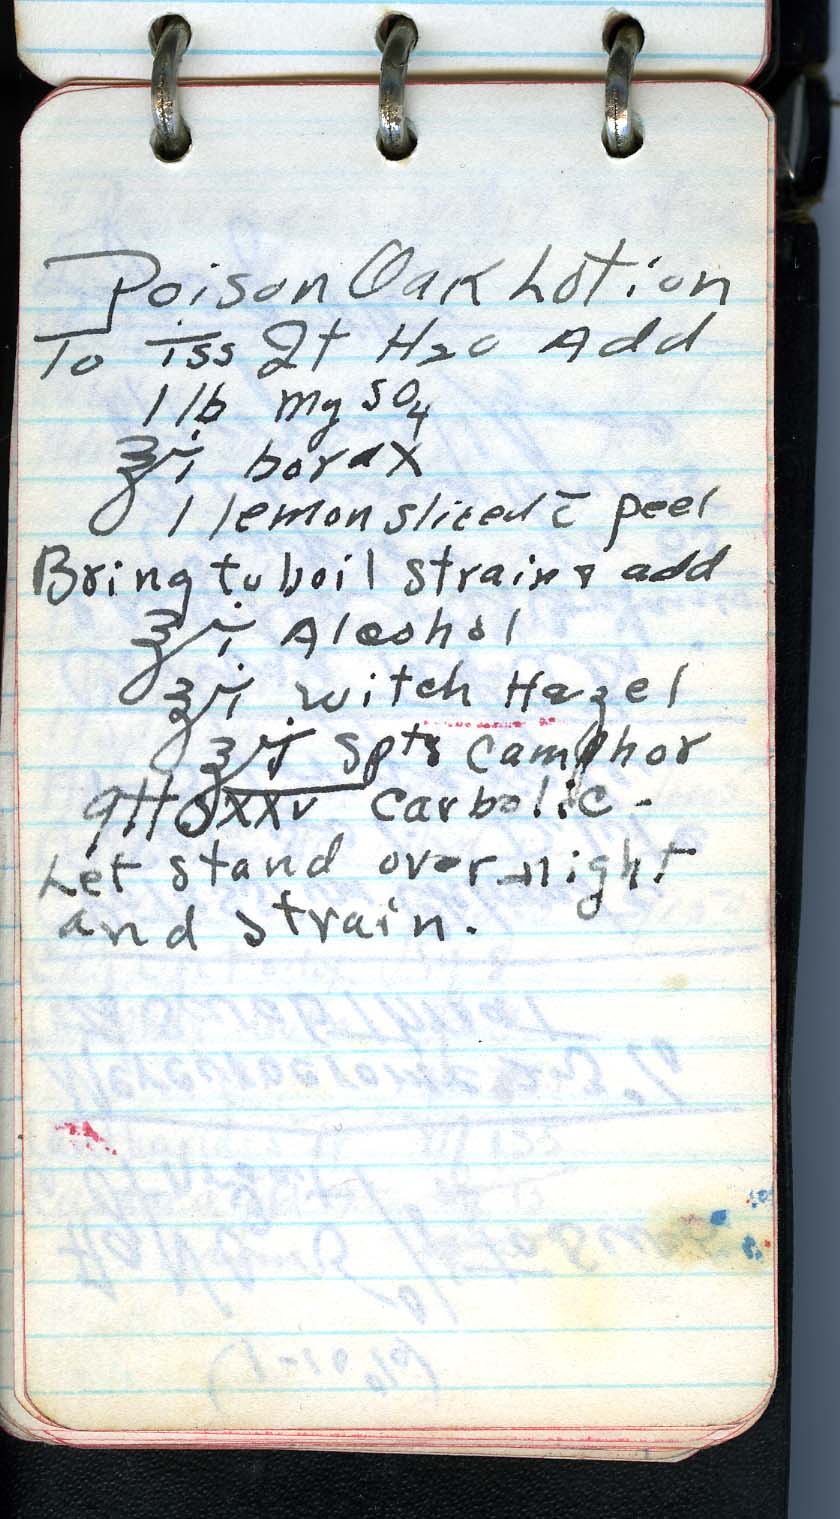 Poison Oak Lotion
To iss Qt H2O Add
1 lb mg SO4
℥i borax
1 lemon sliced c̄ peel
Bring to boil strain & add
℥i Alcohol
℥i witch Hazel
℥j Spts Camphor
gtts XXV Carbolic -
Let stand over-night
and strain.